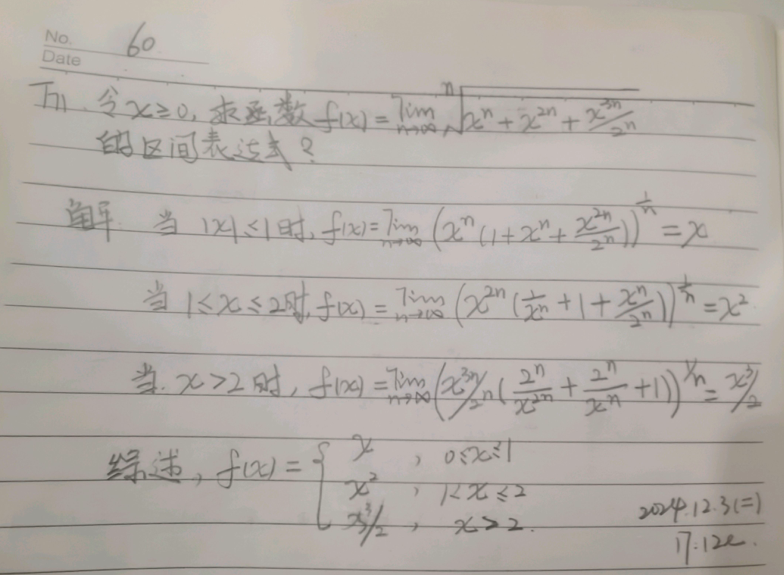 No. 60
Date
令x≥0, 求函数f(x)=lim_{n→∞} ⁿ√(xⁿ+x²ⁿ+x³ⁿ/2ⁿ)
的区间表达式?
解 当 |x|≤1时, f(x)=lim_{n→∞} (xⁿ(1+xⁿ+x²ⁿ/2ⁿ))^{1/n} = x
当 1≤x≤2时, f(x)=lim_{n→∞} (x²ⁿ(1/xⁿ+1+xⁿ/2ⁿ))^{1/n} = x²
当 x>2时, f(x)=lim_{n→∞} (x³ⁿ/2ⁿ(2ⁿ/x²ⁿ+2ⁿ/xⁿ+1))^{1/n} = x³/2
综述, f(x)={ x , 0≤x≤1
x² , 1<x≤2
x³/2 , x>2.
2024.12.3(二)